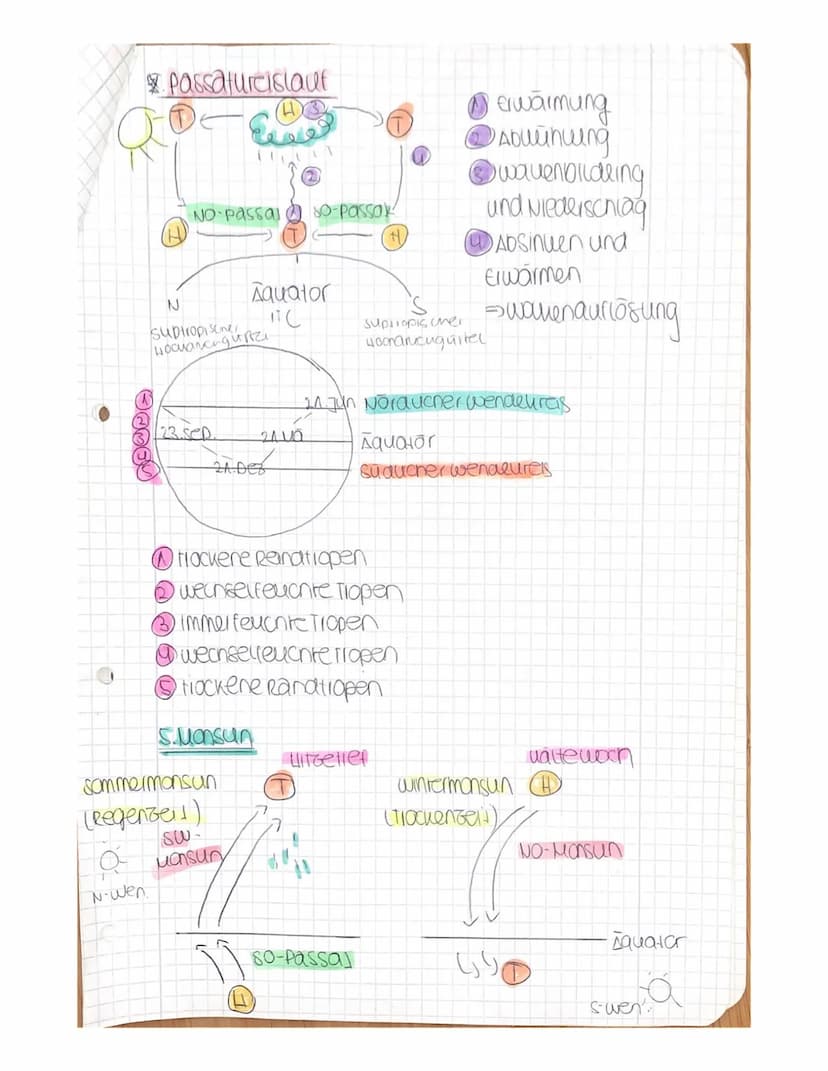 4. Passatkreislauf
T H 3 T
① Erwärmung
② Abkühlung
③ Wolkenbildung
und Niederschlag
④ Absinken und
Erwärmen
⇒ Wolkenauflösung
4
2
NO-Passat 1 SO-Passat
H T H
N Äquator S
ITC
subtropischer
Hochdruckgürtel
subtropischer
Hochdruckgürtel
1 21. Jun Nördlicher Wendekreis
2
3 23. Sep. 21. Mä Äquator
4
5 21. Dez Südlicher Wendekreis
① trockene Randtropen
② wechselfeuchte Tropen
③ immerfeuchte Tropen
④ wechselfeuchte Tropen
⑤ trockene Randtropen
5. Monsun
Hitzetief
Kältehoch
Sommermonsun T
(Regenzeit)
SW-
Monsun
N-Wen.
Wintermonsun H
(Trockenzeit)
NO-Monsun
Äquator
SO-Passat
H
T
S-Wen.